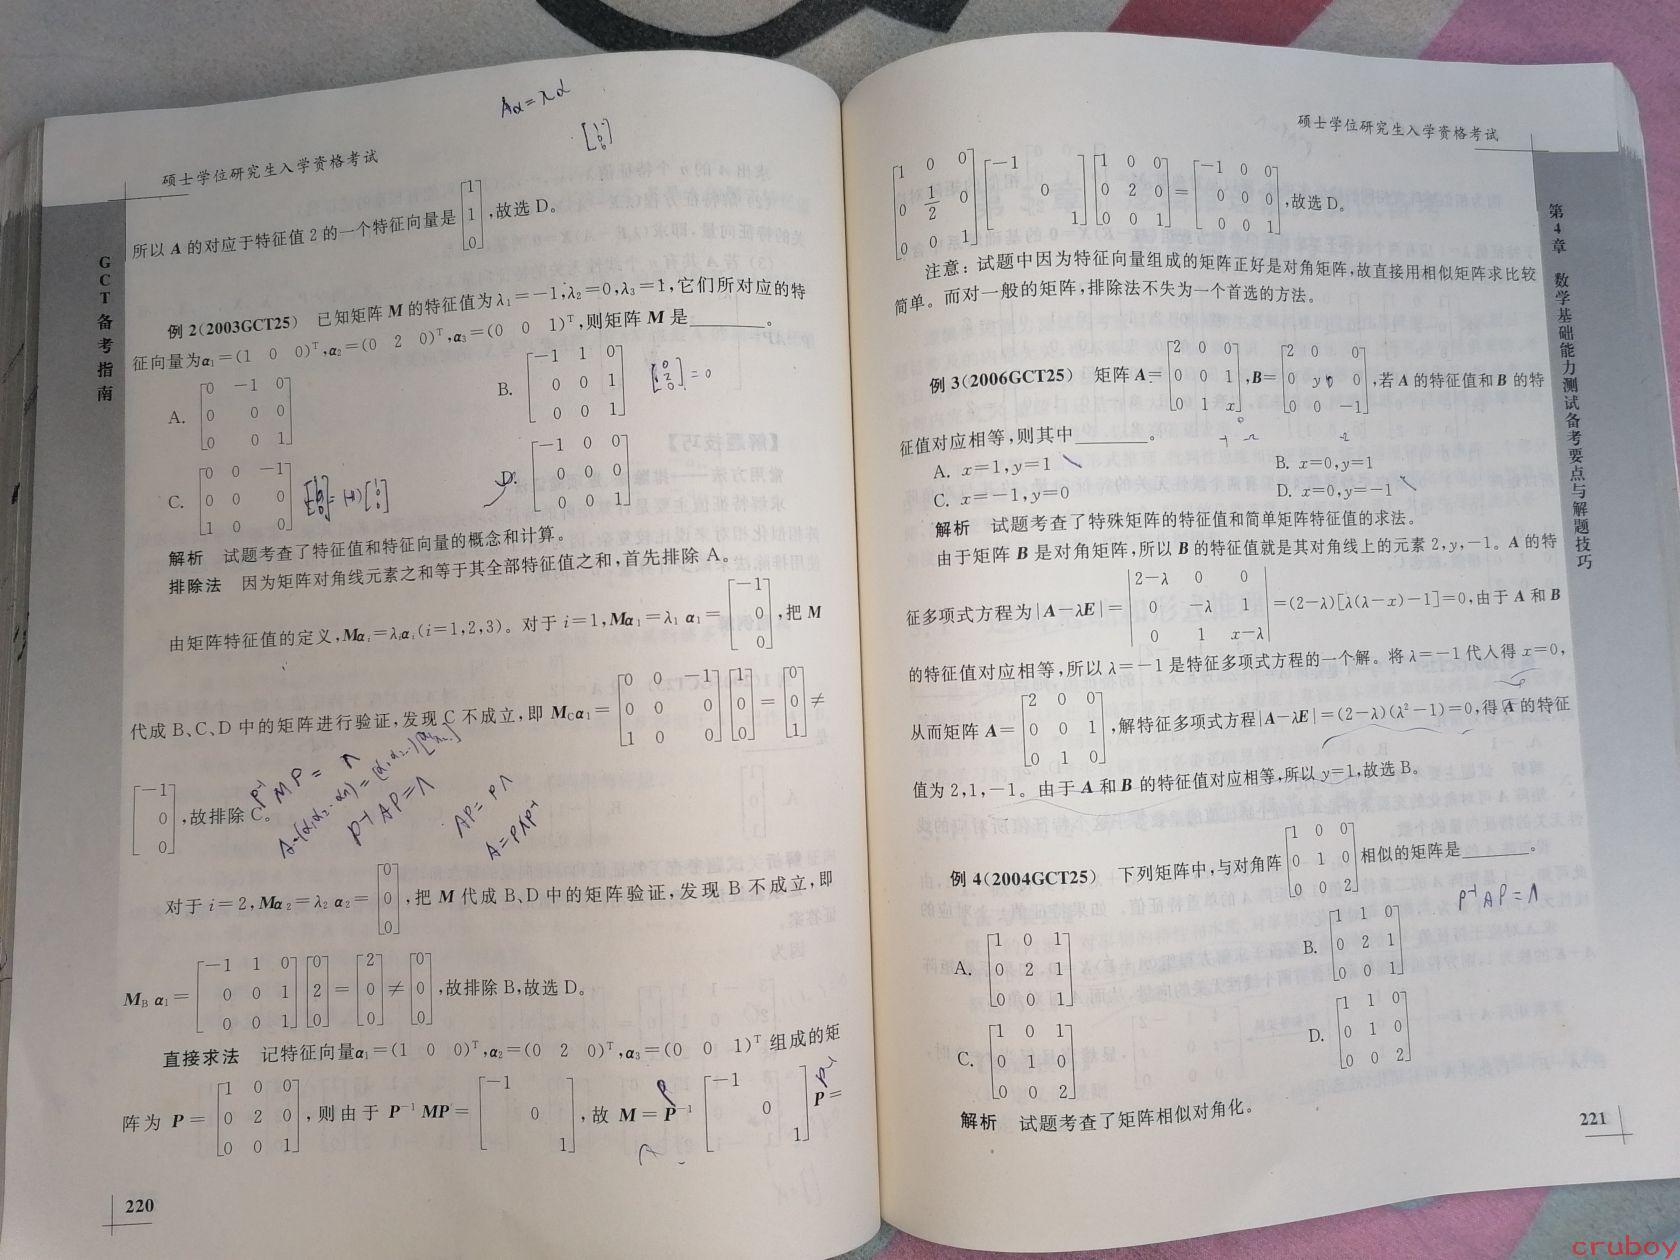 硕士学位研究生入学资格考试
GCT备考指南
Aα=λα
[1 0 0]
所以 A 的对应于特征值 2 的一个特征向量是 [1 1 0] ,故选 D。
例 2(2003GCT25) 已知矩阵 M 的特征值为 λ₁=-1,λ₂=0,λ₃=1,它们所对应的特
征向量为α₁=(1 0 0)ᵀ,α₂=(0 2 0)ᵀ,α₃=(0 0 1)ᵀ,则矩阵 M 是________。
A. [0 -1 0; 0 0 0; 0 0 1] B. [-1 1 0; 0 0 1; 0 0 1]
C. [0 0 -1; 0 0 0; 1 0 0] D. [-1 0 0; 0 0 0; 0 0 1]
解析 试题考查了特征值和特征向量的概念和计算。
排除法 因为矩阵对角线元素之和等于其全部特征值之和,首先排除 A。
由矩阵特征值的定义,Mαᵢ=λᵢαᵢ(i=1,2,3)。对于 i=1,Mα₁=λ₁ α₁=[-1 0 0],把 M
代成 B、C、D 中的矩阵进行验证,发现 C 不成立,即 M_Cα₁=[0 0 -1; 0 0 0; 1 0 0][1 0 0]=[0 0 1]≠
[-1 0 0],故排除 C。
P⁻¹MP=Λ
P⁻¹AP=Λ
AP=PΛ
A=PΛP⁻¹
对于 i=2,Mα₂=λ₂ α₂=[0 0 0],把 M 代成 B、D 中的矩阵验证,发现 B 不成立,即
M_B α₁=[-1 1 0; 0 0 1; 0 0 1][0 2 0]=[2 0 0]≠[0 0 0],故排除 B,故选 D。
直接求法 记特征向量α₁=(1 0 0)ᵀ,α₂=(0 2 0)ᵀ,α₃=(0 0 1)ᵀ 组成的矩
阵为 P=[1 0 0; 0 2 0; 0 0 1],则由于 P⁻¹MP=[-1 0 1],故 M=P⁻¹[-1 0 1]P=
220
硕士学位研究生入学资格考试
第4章 数学基础能力测试备考要点与解题技巧
[1 0 0; 0 1/2 0; 0 0 1][-1 0 1][1 0 0; 0 2 0; 0 0 1]=[-1 0 0; 0 0 0; 0 0 1],故选 D。
注意:试题中因为特征向量组成的矩阵正好是对角矩阵,故直接用相似矩阵求比较
简单。而对一般的矩阵,排除法不失为一个首选的方法。
例 3(2006GCT25) 矩阵 A=[2 0 0; 0 0 1; 0 1 x],B=[2 0 0; 0 y 0; 0 0 -1],若 A 的特征值和 B 的特
征值对应相等,则其中________。
A. x=1,y=1 B. x=0,y=1
C. x=-1,y=0 D. x=0,y=-1
解析 试题考查了特殊矩阵的特征值和简单矩阵特征值的求法。
由于矩阵 B 是对角矩阵,所以 B 的特征值就是其对角线上的元素 2,y,-1。A 的特
征多项式方程为|A-λE|=|2-λ 0 0; 0 -λ 1; 0 1 x-λ|=(2-λ)[λ(λ-x)-1]=0,由于 A 和 B
的特征值对应相等,所以 λ=-1 是特征多项式方程的一个解。将 λ=-1 代入得 x=0,
从而矩阵 A=[2 0 0; 0 0 1; 0 1 0],解特征多项式方程|A-λE|=(2-λ)(λ²-1)=0,得 A 的特征
值为 2,1,-1。由于 A 和 B 的特征值对应相等,所以 y=1,故选 B。
例 4(2004GCT25) 下列矩阵中,与对角阵[1 0 0; 0 1 0; 0 0 2]相似的矩阵是________。
P⁻¹AP=Λ
A. [1 0 1; 0 2 1; 0 0 1] B. [1 1 0; 0 2 1; 0 0 1]
C. [1 0 1; 0 1 0; 0 0 2] D. [1 1 0; 0 1 0; 0 0 2]
解析 试题考查了矩阵相似对角化。
221
cruboy